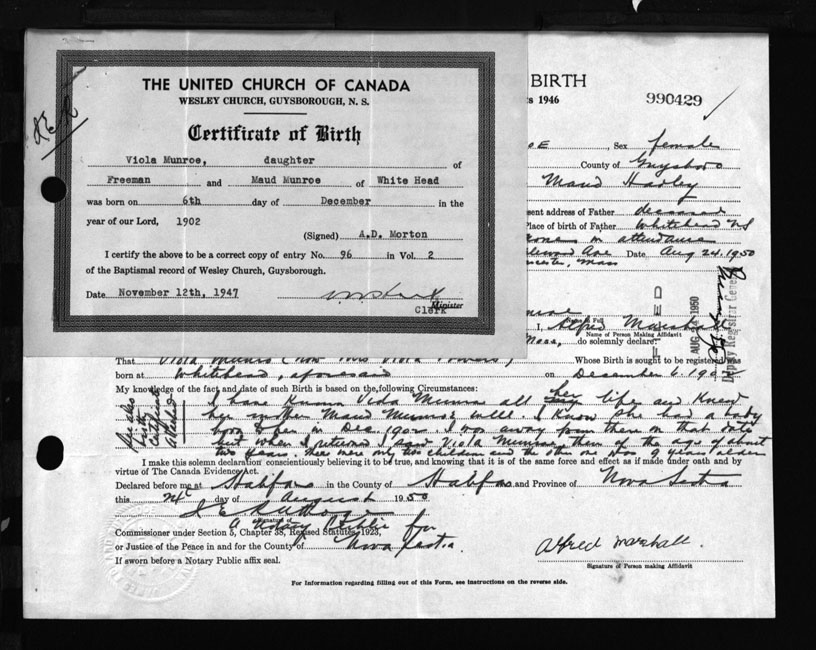 THE UNITED CHURCH OF CANADA
WESLEY CHURCH, GUYSBOROUGH, N. S.
Certificate of Birth
Viola Munroe, daughter of
Freeman and Maud Munroe of White Head
was born on 6th day of December in the
year of our Lord, 1902
(Signed) A.D. Morton
I certify the above to be a correct copy of entry No. 96 in Vol. 2
of the Baptismal record of Wesley Church, Guysborough.
Date November 12th, 1947
Minister
Clerk
BIRTH
1946
990429
Sex female
County of Guysboro
Maud Hadley
sent address of Father deceased
Place of birth of Father Whitehead NS
in attendance
Ave Date Aug 24, 1950
Mass
I, Alfred Marshall
Name of Person Making Affidavit
do solemnly declare:
AUG 1950
Deputy Registrar General
That Viola Munro (now Mrs Viola
Whose Birth is sought to be registered was
born at Whitehead, aforesaid on December 6, 190
My knowledge of the fact and date of such Birth is based on the following Circumstances:
I have known Viola Munroe all her life and knew
her mother Maud Munroe well. I know she had a baby
born to her in Dec. 1902. I was away from there on that date
but when I returned I saw Viola Munroe, then of the age of about
two years. There were only two children and the other one was 9 years older
besides birth certificate attached
I make this solemn declaration conscientiously believing it to be true, and knowing that it is of the same force and effect as if made under oath and by
virtue of The Canada Evidence Act.
Declared before me at Halifax in the County of Halifax and Province of Nova Scotia
this 24 day of August 1950
Signature of
A Notary Public for
Commissioner under Section 5, Chapter 38, Revised Statutes, 1923,
or Justice of the Peace in and for the County of Nova Scotia.
If sworn before a Notary Public affix seal.
Alfred Marshall.
Signature of Person making Affidavit
For Information regarding filling out of this Form, see instructions on the reverse side.